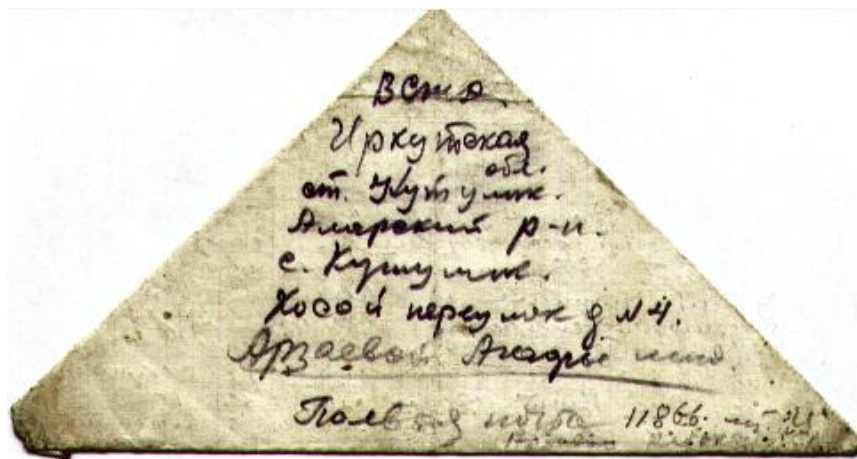 ВСЖД
Иркутская
обл.
ст. Кутулик.
Аларский р-н.
с. Кутулик.
Косой переулок д N 4.
Арзаевой Агафье
Полевая почта 11866.